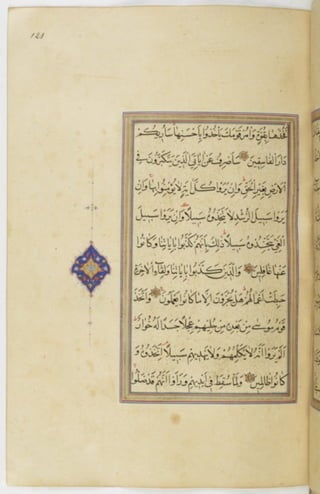 فَخُذْهَا بِقُوَّةٍ وَأْمُرْ قَوْمَكَ يَأْخُذُوا بِأَحْسَنِهَا سَأُرِيكُمْ
دَارَ الْفَاسِقِينَ سَأَصْرِفُ عَنْ آيَاتِيَ الَّذِينَ يَتَكَبَّرُونَ فِي
الْأَرْضِ بِغَيْرِ الْحَقِّ وَإِنْ يَرَوْا كُلَّ آيَةٍ لَا يُؤْمِنُوا بِهَا وَإِنْ
يَرَوْا سَبِيلَ الرُّشْدِ لَا يَتَّخِذُوهُ سَبِيلًا وَإِنْ يَرَوْا سَبِيلَ
الْغَيِّ يَتَّخِذُوهُ سَبِيلًا ذَلِكَ بِأَنَّهُمْ كَذَّبُوا بِآيَاتِنَا وَكَانُوا
عَنْهَا غَافِلِينَ وَالَّذِينَ كَذَّبُوا بِآيَاتِنَا وَلِقَاءِ الْآخِرَةِ
حَبِطَتْ أَعْمَالُهُمْ هَلْ يُجْزَوْنَ إِلَّا مَا كَانُوا يَعْمَلُونَ وَاتَّخَذَ
قَوْمُ مُوسَى مِنْ بَعْدِهِ مِنْ حُلِيِّهِمْ عِجْلًا جَسَدًا لَهُ خُوَارٌ
أَلَمْ يَرَوْا أَنَّهُ لَا يُكَلِّمُهُمْ وَلَا يَهْدِيهِمْ سَبِيلًا اتَّخَذُوهُ وَ
كَانُوا ظَالِمِينَ وَلَمَّا سُقِطَ فِي أَيْدِيهِمْ وَرَأَوْا أَنَّهُمْ قَدْ ضَلُّوا